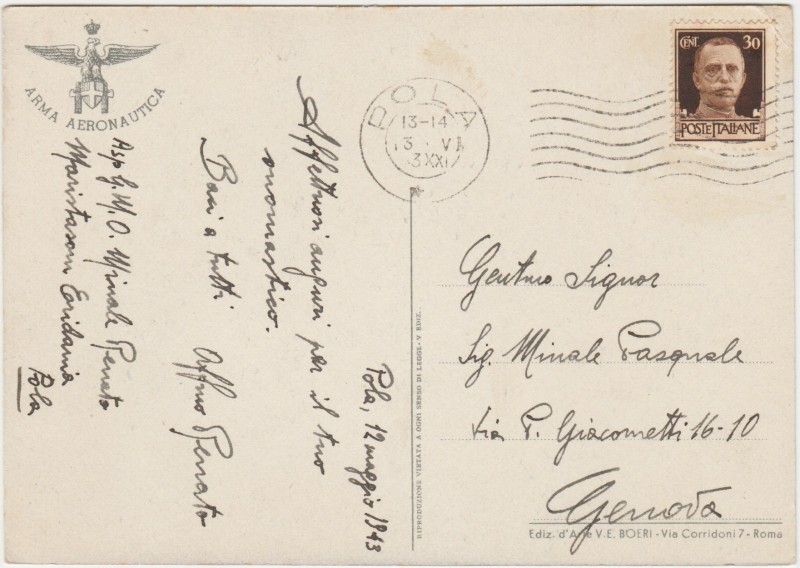 ARMA AERONAUTICA
Pola, 12 maggio 1943
Affettuosi auguri per il tuo
onomastico.
Baci a tutti Affmo Renato
Asp. G.M.O. Minale Renato
Maristasom Eridania
Pola
POLA
13-14
13 · V
3 XXI
CENT. 30
POSTE ITALIANE
Gentmo Signor
Sig. Minale Pasquale
Via P. Giacometti 16-10
Genova
RIPRODUZIONE VIETATA A OGNI SENSO DI LEGGE - V EDIZ.
Ediz. d'Arte V.E. BOERI - Via Corridoni 7 - Roma